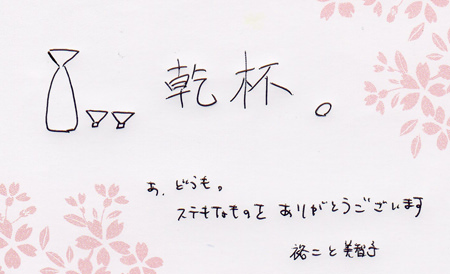 乾杯。
あ、どうも。
ステキなものを ありがとうございます
裕二と美智子